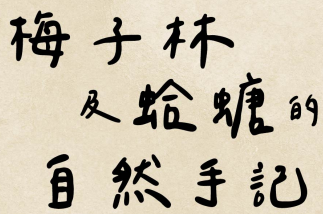 梅子林
及蛤蟆的
自然手記